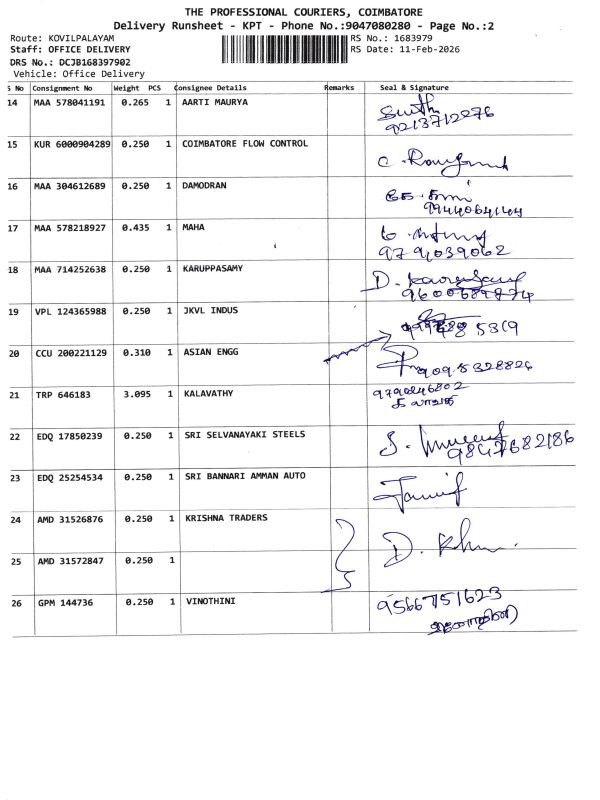 THE PROFESSIONAL COURIERS, COIMBATORE
Delivery Runsheet - KPT - Phone No.:9047080280 - Page No.:2
Route: KOVILPALAYAM
RS No.: 1683979
Staff: OFFICE DELIVERY
RS Date: 11-Feb-2026
DRS No.: DCJB168397902
Vehicle: Office Delivery
S No Consignment No Weight PCS Consignee Details Remarks Seal & Signature
14 MAA 578041191 0.265 1 AARTI MAURYA
9213712276
15 KUR 6000904289 0.250 1 COIMBATORE FLOW CONTROL
16 MAA 304612689 0.250 1 DAMODRAN
9944064144
17 MAA 578218927 0.435 1 MAHA
9791039062
18 MAA 714252638 0.250 1 KARUPPASAMY
D.
9600689874
19 VPL 124365988 0.250 1 JKVL INDUS
85319
20 CCU 200221129 0.310 1 ASIAN ENGG
9095328826
21 TRP 646183 3.095 1 KALAVATHY
9790246802
கலாவதி
22 EDQ 17850239 0.250 1 SRI SELVANAYAKI STEELS
9847682186
23 EDQ 25254534 0.250 1 SRI BANNARI AMMAN AUTO
24 AMD 31526876 0.250 1 KRISHNA TRADERS
25 AMD 31572847 0.250 1
26 GPM 144736 0.250 1 VINOTHINI
9566751623